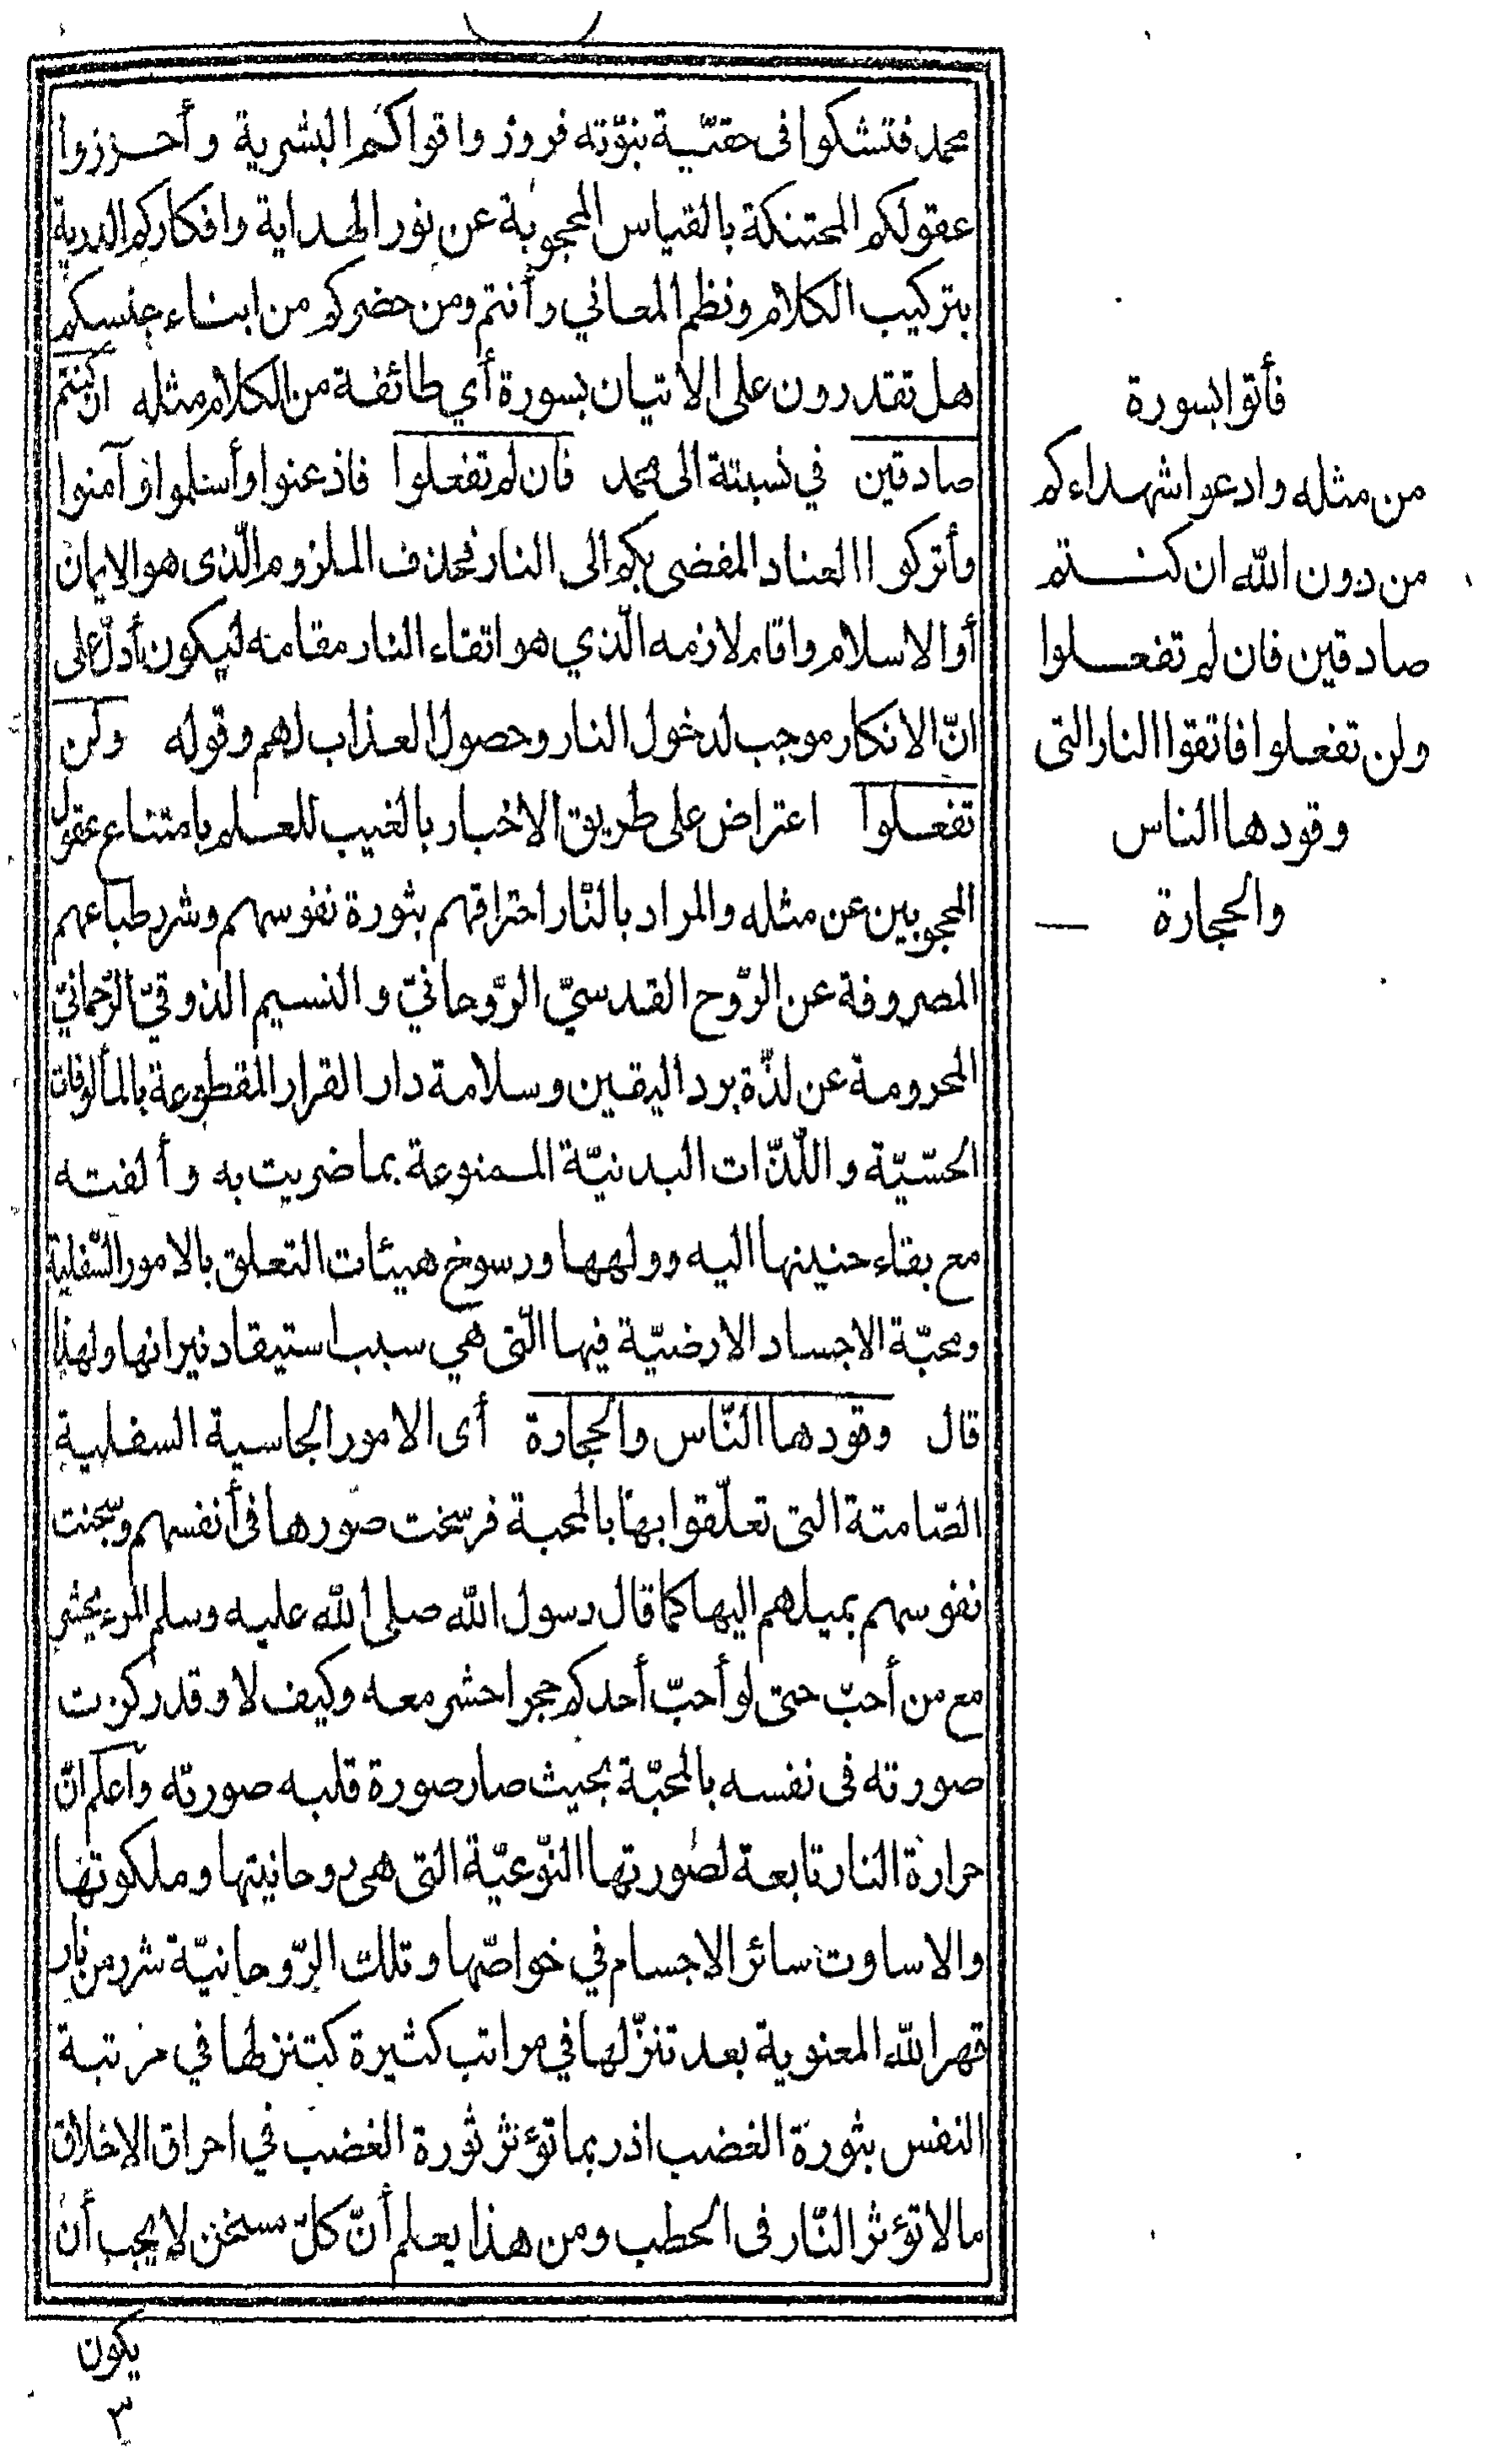 محمد فتشكوا في حقيّة بنوّته فروزوا قواكم البشرية وأحرزوا
عقولكم المحتنكة بالقياس المحجوبة عن نور الهداية وافكاركم الدربة
بتركيب الكلام ونظم المعاني وأنتم ومن حضركم من ابناء جنسكم
هل تقدرون على الاتيان بسورة أي طائفة من الكلام مثله ان كنتم
صادقين في نسبته الى محمد فان لم تفعلوا فاذعنوا وأسلموا وآمنوا
وأتركوا العناد المفضى بكم الى النار فحذف الملزوم الّذى هو الايمان
أو الاسلام واقام لازمه الّذي هو اتقاء النار مقامه ليكون أدلّ على
انّ الانكار موجب لدخول النار وحصول العذاب لهم وقوله ولن
تفعلوا اعتراض على طريق الاخبار بالغيب للعلم بامتناع عقول
المحجوبين عن مثله والمراد بالنّار احتراقهم بثورة نفوسهم وشرر طباعهم
المصروفة عن الرّوح القدسيّ الرّوحانيّ والنسيم الذوقيّ الرّحمانيّ
المحرومة عن لذّة برد اليقين وسلامة دار القرار المقطوعة بالمألوفات
الحسّيّة واللّذّات البدنيّة الممنوعة بما ضريت به وألفته
مع بقاء حنينها اليه وولهها ورسوخ هيئات التعلق بالامور السّفلية
ومحبّة الاجساد الارضيّة فيها الّتى هي سبب استيقاد نيرانها ولهذا
قال وقودها النّاس والحجارة أى الامور الجاسية السفلية
الصّامتة التى تعلّقوا بها بالمحبة فرسخت صورها فى أنفسهم وسجنت
نفوسهم بميلهم اليها كما قال رسول الله صلى الله عليه وسلم المرء يحشر
مع من أحبّ حتى لو أحبّ أحدكم حجرا حشر معه وكيف لا وقد ركزت
صورته فى نفسه بالمحبّة بحيث صار صورة قلبه صورته واعلم انّ
حرارة النار تابعة لصورتها النّوعيّة التى هى روحانيتها وملكوتها
والا ساوت سائر الاجسام في خواصّها وتلك الرّوحانيّة شرر من نار
قهر الله المعنوية بعد تنزّلها في مراتب كثيرة كتنزلها في مرتبة
النفس بثورة الغضب اذ ربما تؤثر ثورة الغضب في احراق الاخلاق
ما لا تؤثر النّار فى الحطب ومن هذا يعلم أنّ كلّ مسخن لا يجب أن
يكون
٣
فأتوا بسورة
من مثله وادعوا شهداءكم
من دون الله ان كنتم
صادقين فان لم تفعلوا
ولن تفعلوا فاتقوا النار التى
وقودها الناس
والحجارة